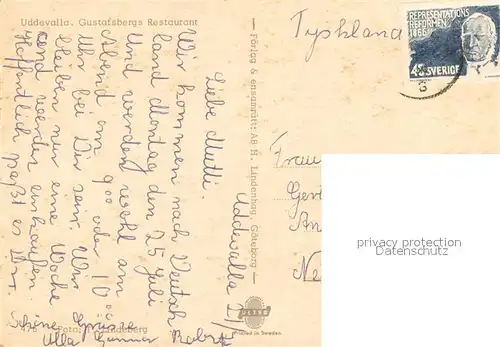 Uddevalla. Gustafsbergs Restaurant
Tyskland
REPRESENTATIONS
REFORMEN
1866
SVERIGE
Uddevalla
Liebe Mutti.
Wir kommen nach Deutsch
land Montag den 25 Juli
Und werden wohl am
Abend um 9⁰⁰ oder 10⁰⁰
Uhr bei Dir sein. Wir
bleiben nur eine Woche
und werden einkaufen
Hoffentlich paßt es Dir.
Schöne Grüsse
Ulla Gunnar
Förlag & ensamrätt: AB H. Lindenhag, Göteborg
Frau
Gert
An
Ne
privacy protection
Datenschutz
ULTRA
Printed in Sweden
Foto: